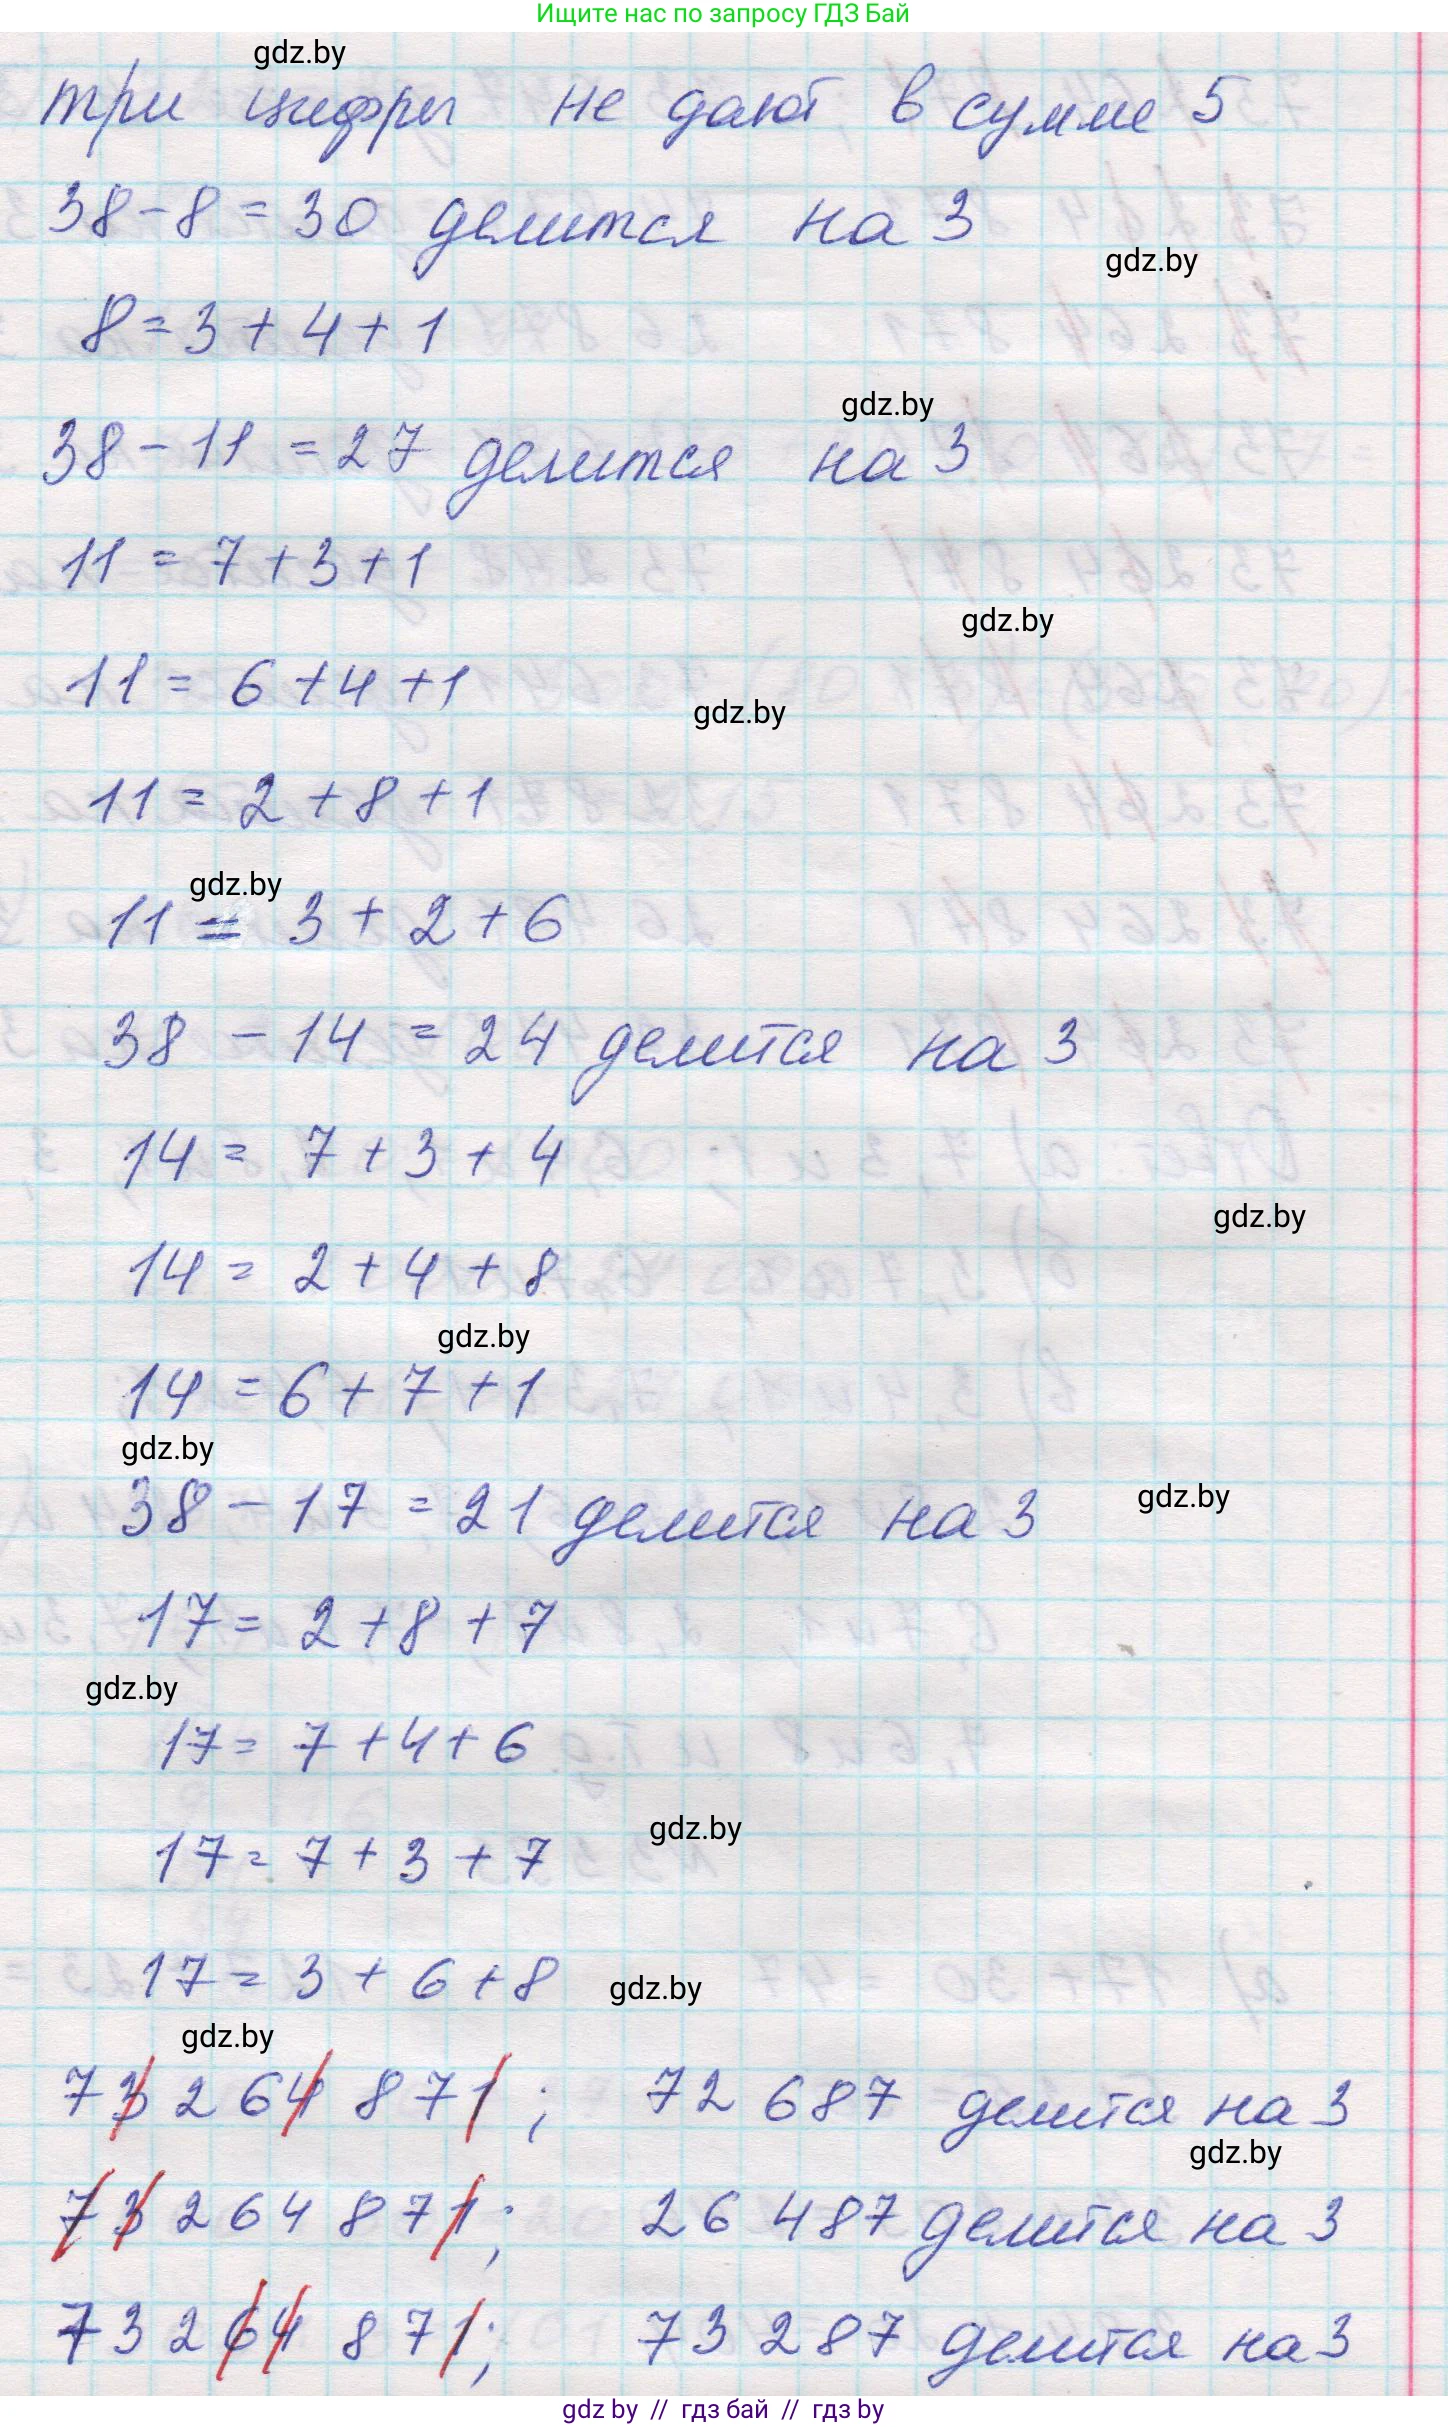 Ищите нас по запросу ГДЗ Бай
gdz.by
три цифры не дают в сумме 5
38 - 8 = 30 делится на 3
gdz.by
8 = 3 + 4 + 1
gdz.by
38 - 11 = 27 делится на 3
11 = 7 + 3 + 1
gdz.by
11 = 6 + 4 + 1
gdz.by
11 = 2 + 8 + 1
gdz.by
11 = 3 + 2 + 6
38 - 14 = 24 делится на 3
14 = 7 + 3 + 4
gdz.by
14 = 2 + 4 + 8
gdz.by
14 = 6 + 7 + 1
gdz.by
38 - 17 = 21 делится на 3
gdz.by
17 = 2 + 8 + 7
gdz.by
17 = 7 + 4 + 6
gdz.by
17 = 7 + 3 + 7
17 = 3 + 6 + 8
gdz.by
gdz.by
73 264 871; 72 687 делится на 3
gdz.by
73 264 871; 26 487 делится на 3
73 264 871; 73 287 делится на 3
gdz by // гдз бай // гдз by